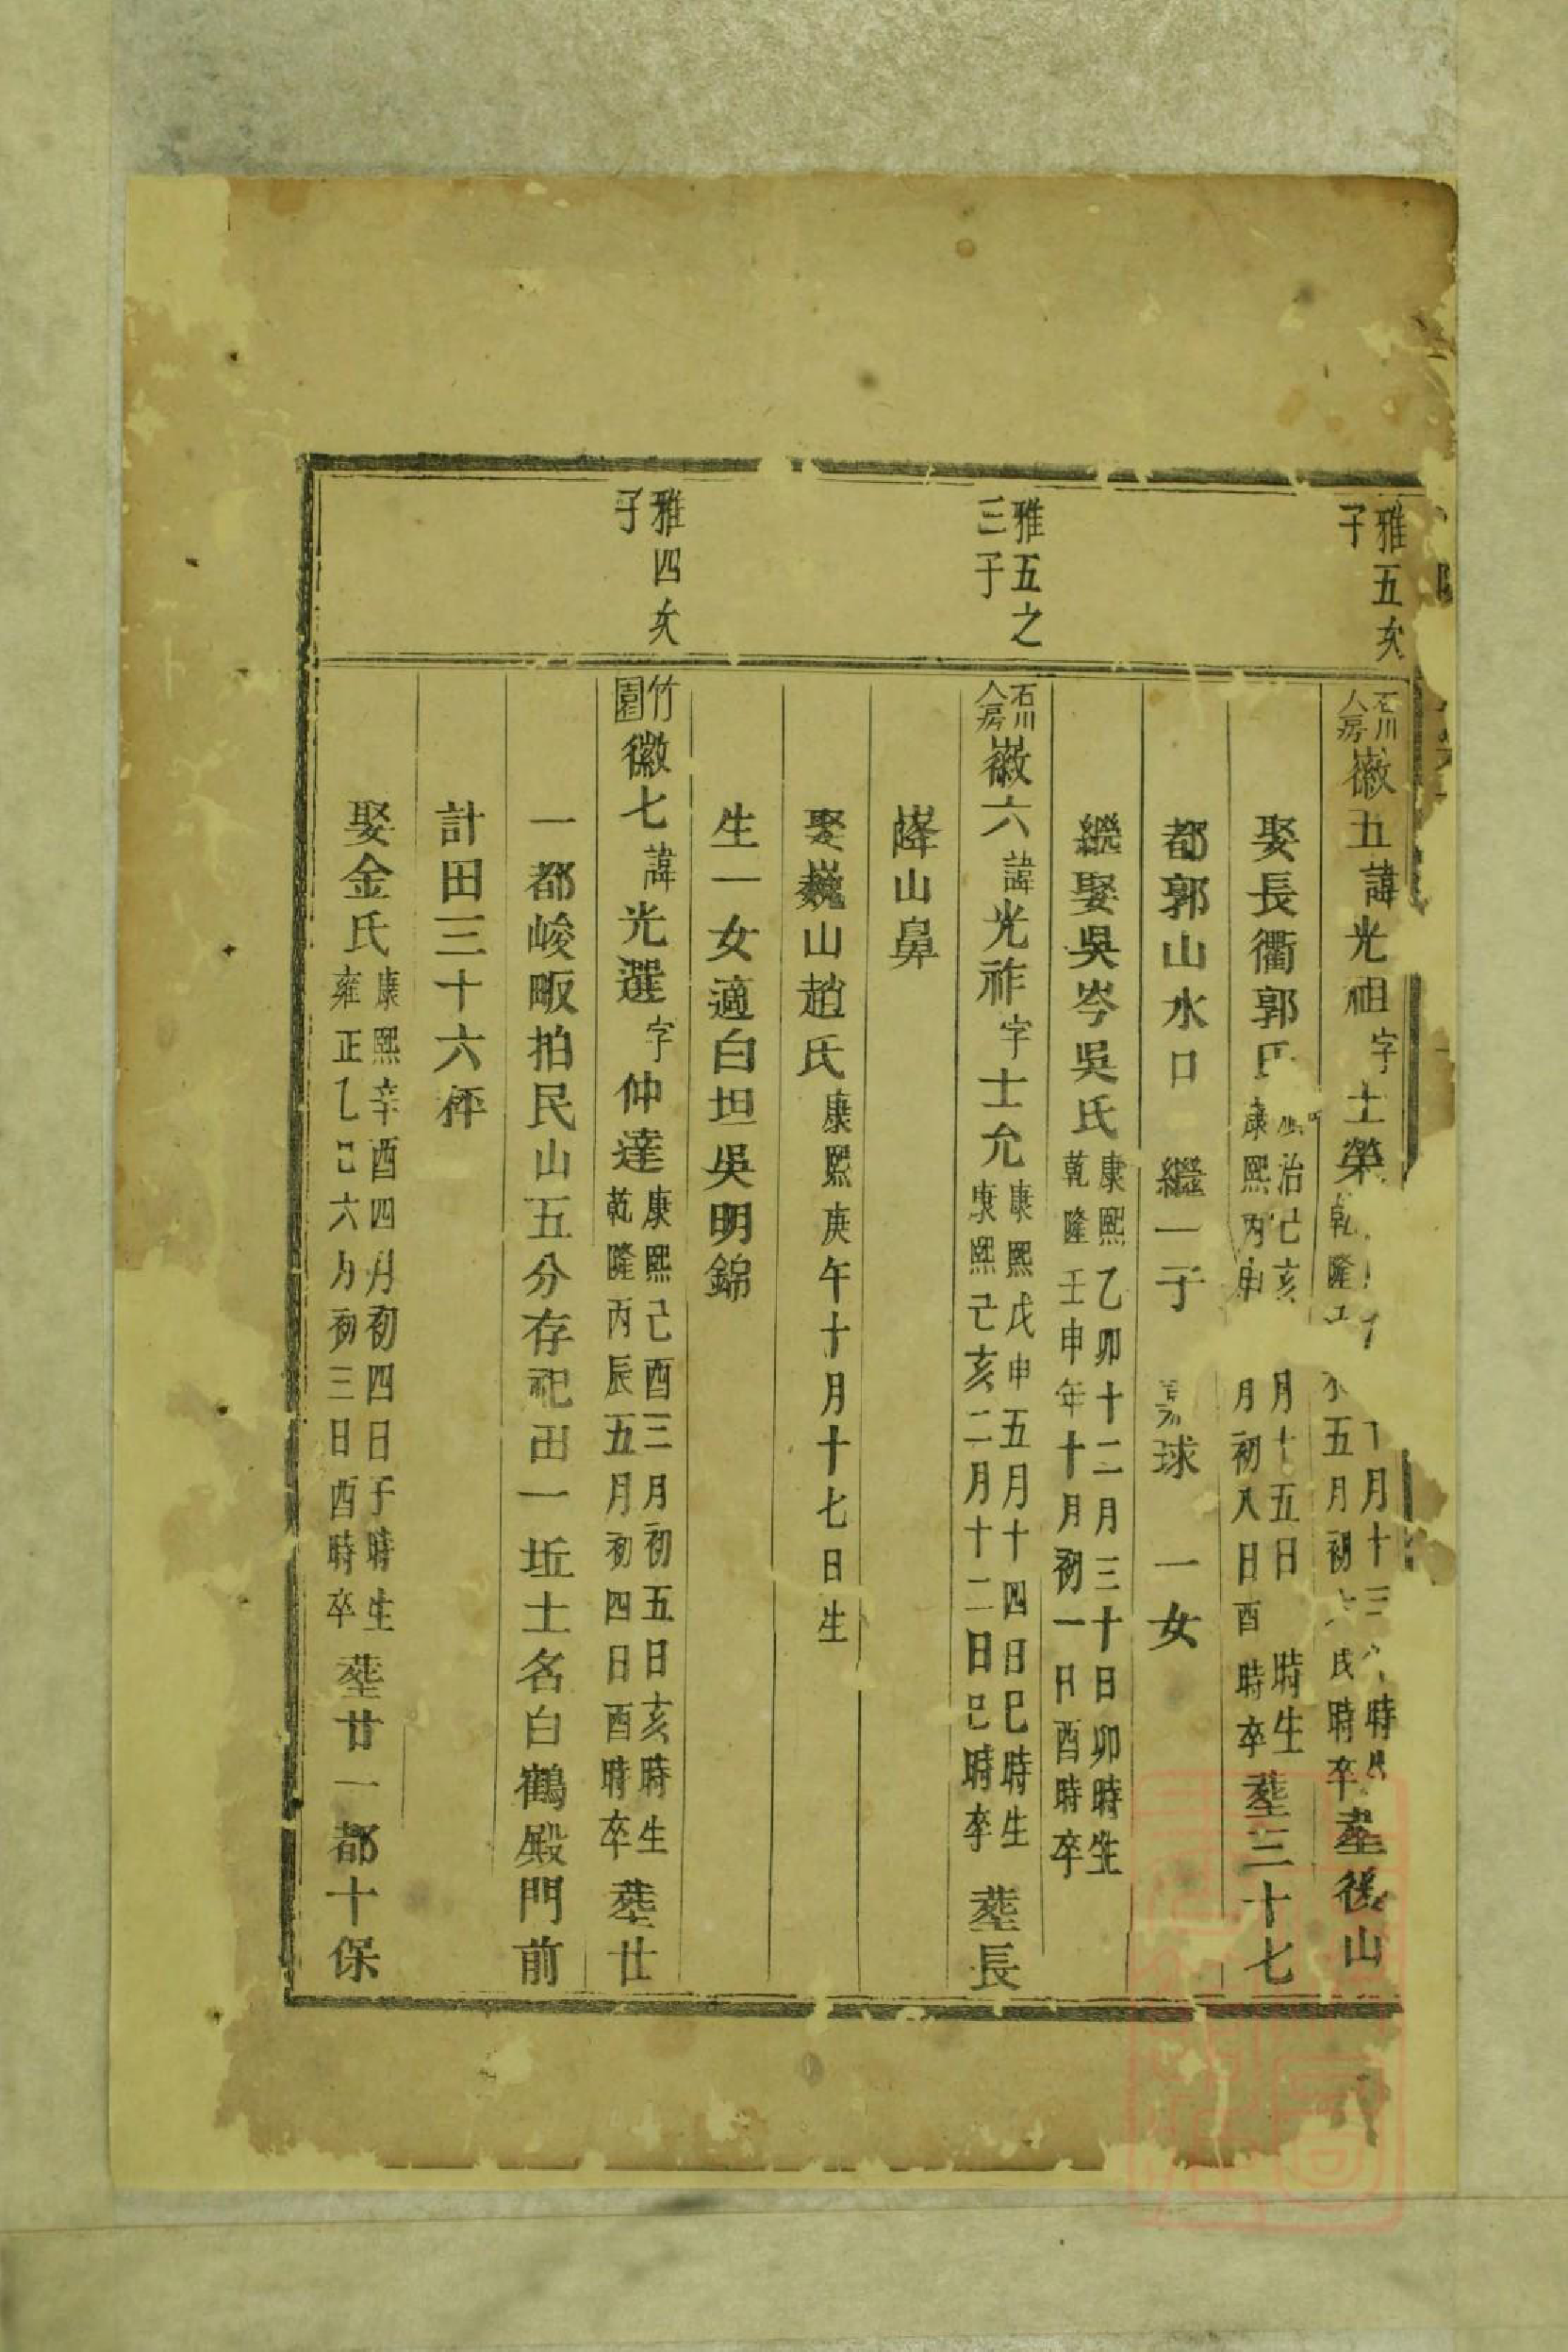 雅五次子
石川人房徽五諱光祖字士榮乾隆五月初戌時卒月十三時塟後山
娶長衢郭氏治己亥月十五日時生康熙丙申月初八日酉時卒塟三十七
都郭山水口 繼一子球 一女
繼娶吳岑吳氏康熙乙卯十二月三十日卯時生乾隆壬申年十月初一日酉時卒
雅五之三子
石川人房徽六諱光祚字士允康熙戊申五月十四日巳時生康熙己亥二月十二日巳時卒 塟長
嶐山鼻
娶巍山趙氏康熙庚午十月十七日生
生一女適白坦吳明錦
雅四次子
竹園徽七諱光選字仲達康熙己酉三月初五日亥時生乾隆丙辰五月初四日酉時卒 塟廿
一都峻畈拍民山五分存祀田一坵土名白鶴殿門前
計田三十六秤
娶金氏康熙辛酉四月初四日子時生雍正乙巳六月初三日酉時卒 塟廿一都十保